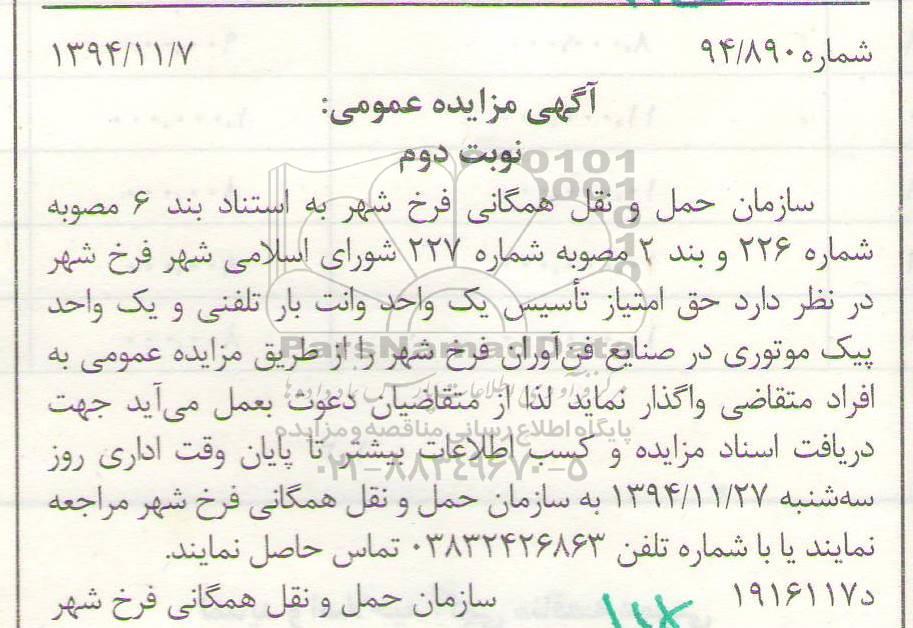 شماره ۹۴/۸۹۰
۱۳۹۴/۱۱/۷
آگهی مزایده عمومی:
نوبت دوم
سازمان حمل و نقل همگانی فرخ شهر به استناد بند ۶ مصوبه
شماره ۲۲۶ و بند ۲ مصوبه شماره ۲۲۷ شورای اسلامی شهر فرخ شهر
در نظر دارد حق امتیاز تأسیس یک واحد وانت بار تلفنی و یک واحد
پیک موتوری در صنایع فن‌آوران فرخ شهر را از طریق مزایده عمومی به
افراد متقاضی واگذار نماید لذا از متقاضیان دعوت بعمل می‌آید جهت
دریافت اسناد مزایده و کسب اطلاعات بیشتر تا پایان وقت اداری روز
سه‌شنبه ۱۳۹۴/۱۱/۲۷ به سازمان حمل و نقل همگانی فرخ شهر مراجعه
نمایند یا با شماره تلفن ۰۳۸۳۲۴۲۶۸۶۳ تماس حاصل نمایند.
د۱۹۱۶۱۱۷
سازمان حمل و نقل همگانی فرخ شهر
ParsNamadData
پایگاه اطلاع رسانی مناقصه و مزایده
۰۲۱-۸۸۳۴۹۶۷۰-۵